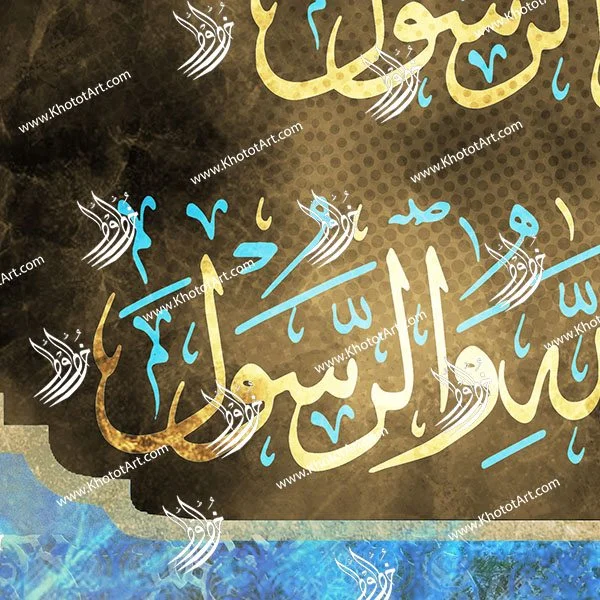 الرسول
لله والرسول
www.KhototArt.com
www.KhototArt.com
www.KhototArt.com
www.KhototArt.com
www.KhototArt.com
www.KhototArt.com
www.KhototArt.com
www.KhototArt.com
www.KhototArt.com
www.KhototArt.com